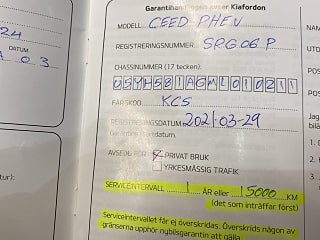 Garantihandlingen avser Kiafordon
MODELL CEED PHEV
24
REGISTRERINGSNUMMER SRG06P
DATUM
03
CHASSINUMMER (17 tecken):
FÄRGKOD KCS
REGISTRERINGSDATUM 2021-03-29
Garantins startdatum.
AVSEDD FÖR PRIVAT BRUK
YRKESMÄSSIG TRAFIK
SERVICEINTERVALL 1 ÅR eller 15000 KM
(det som inträffar först)
Serviceintervallet får ej överskridas. Överskrids någon av
gränserna upphör nybilsgarantin att gälla.